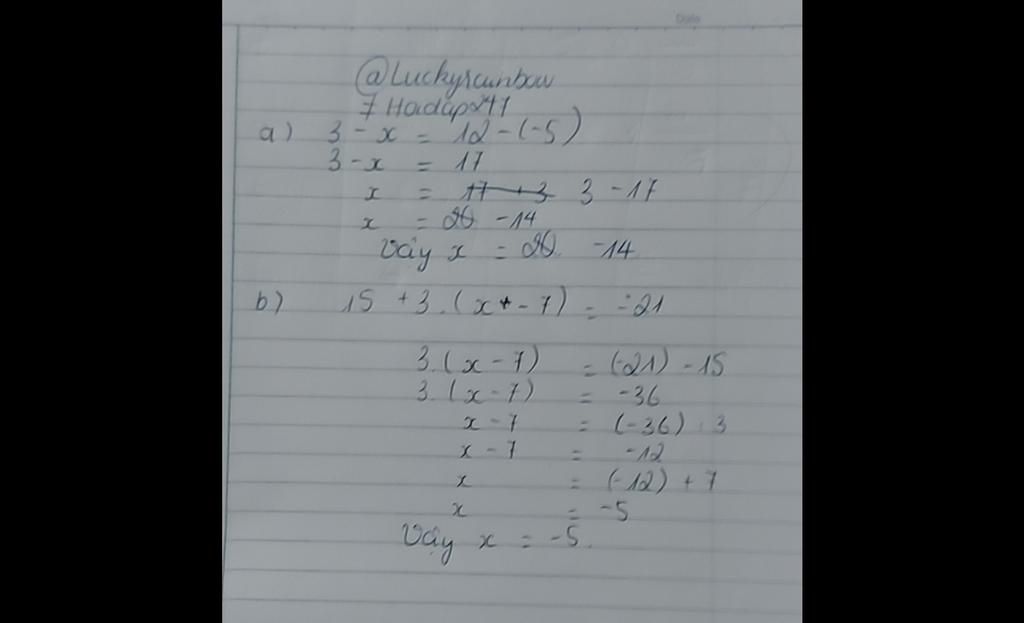 Date
@Luckyrainbow
7 Hoidap247
a) 3 - x = 12 - (-5)
3 - x = 17
x = 17 + 3 3 - 17
x = 20 -14
Vậy x = 20 -14
b) 15 + 3 . (x - 7) = -21
3. (x - 7) = (-21) - 15
3. (x - 7) = -36
x - 7 = (-36) : 3
x - 7 = -12
x = (-12) + 7
x = -5
Vậy x = -5.